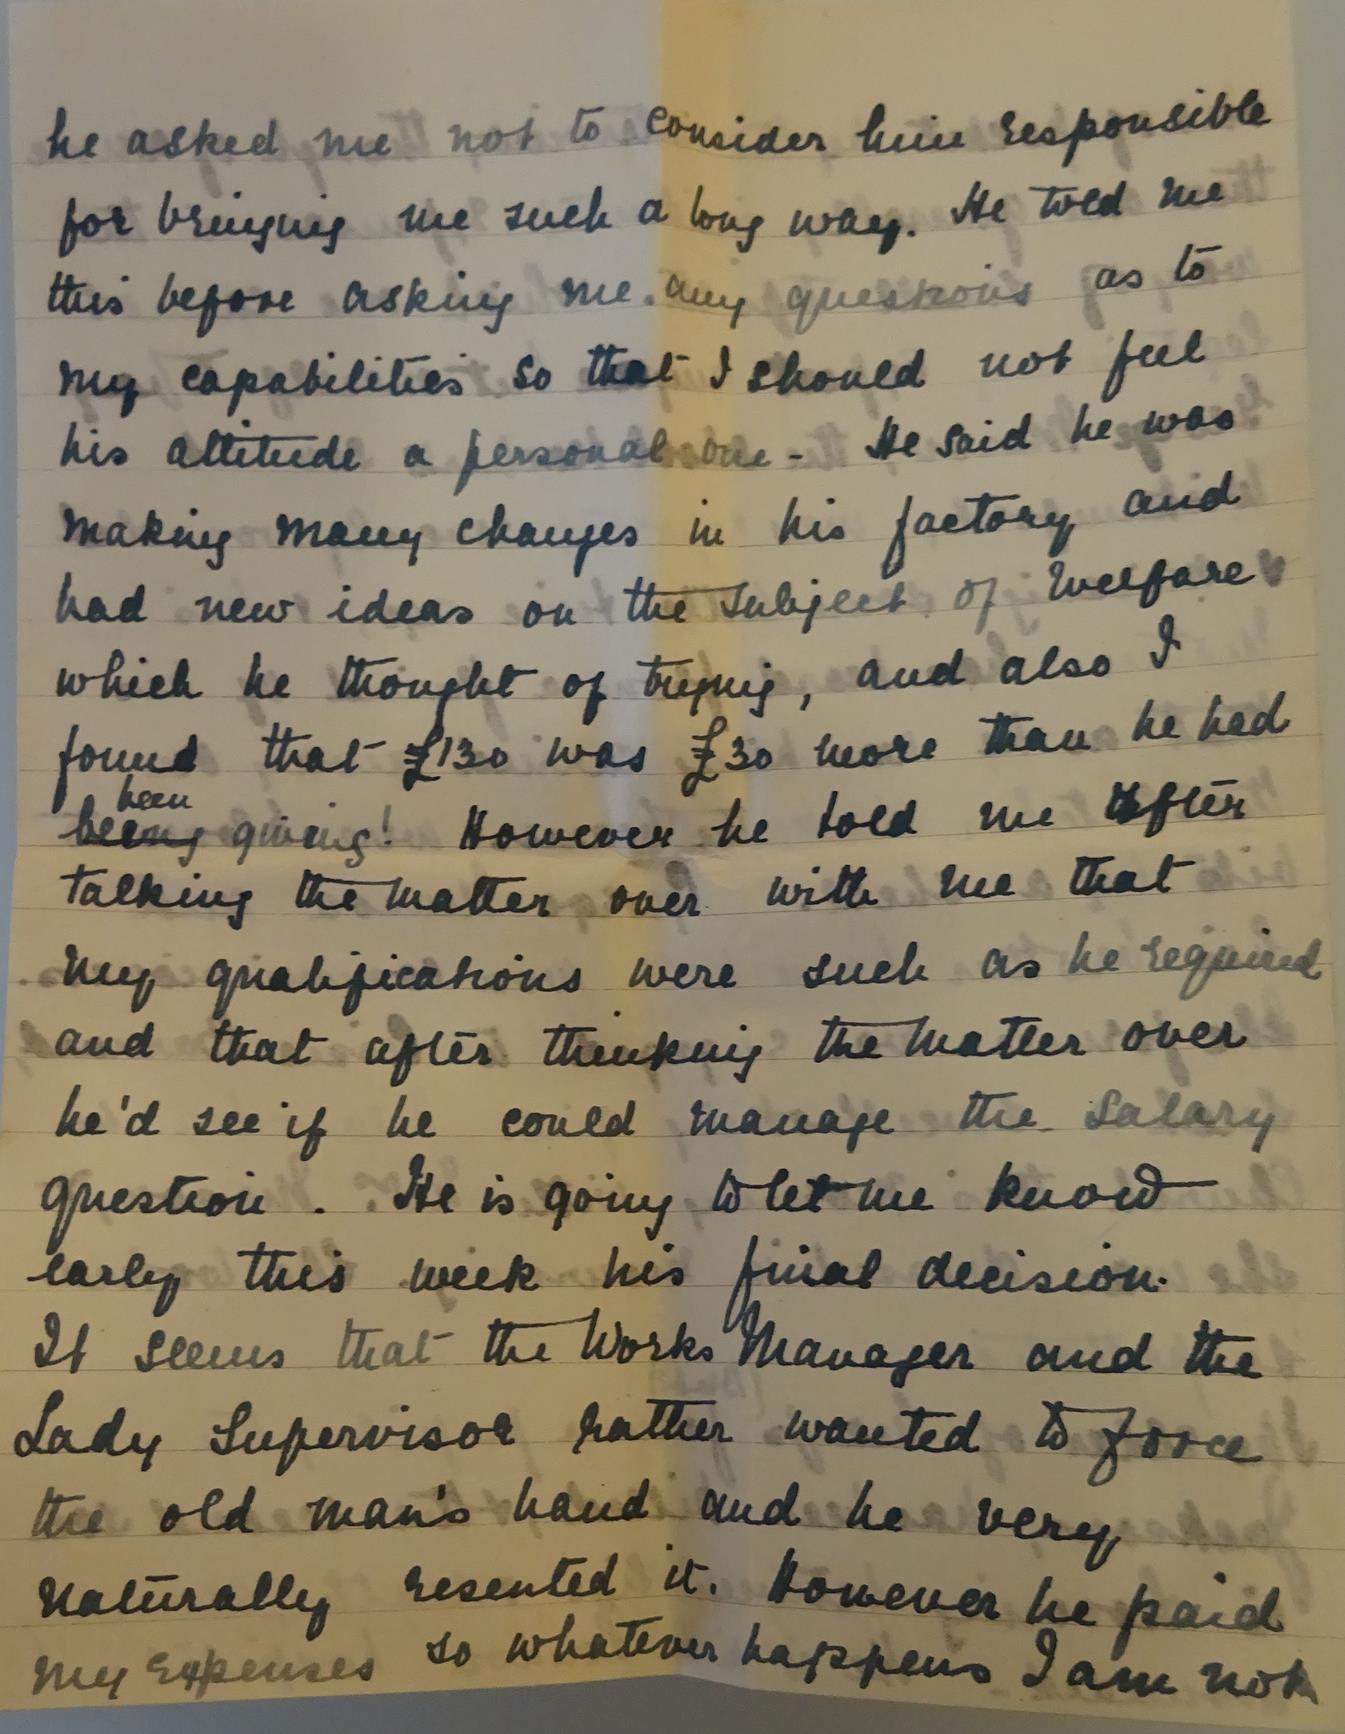 he asked me not to consider him responsible
for bringing me such a long way. He told me
this before asking me any questions as to
my capabilities so that I should not feel
his attitude a personal one - He said he was
making many changes in his factory and
had new ideas on the subject of Welfare
which he thought of trying, and also I
found that £130 was £30 more than he had
been
being giving! However he told me after
talking the matter over with me that
my qualifications were such as he required
and that after thinking the matter over
he'd see if he could manage the salary
question. He is going to let me know
early this week his final decision.
It seems that the Works Manager and the
Lady Supervisor rather wanted to force
the old man's hand and he very
naturally resented it. However he paid
my expenses so whatever happens I am not